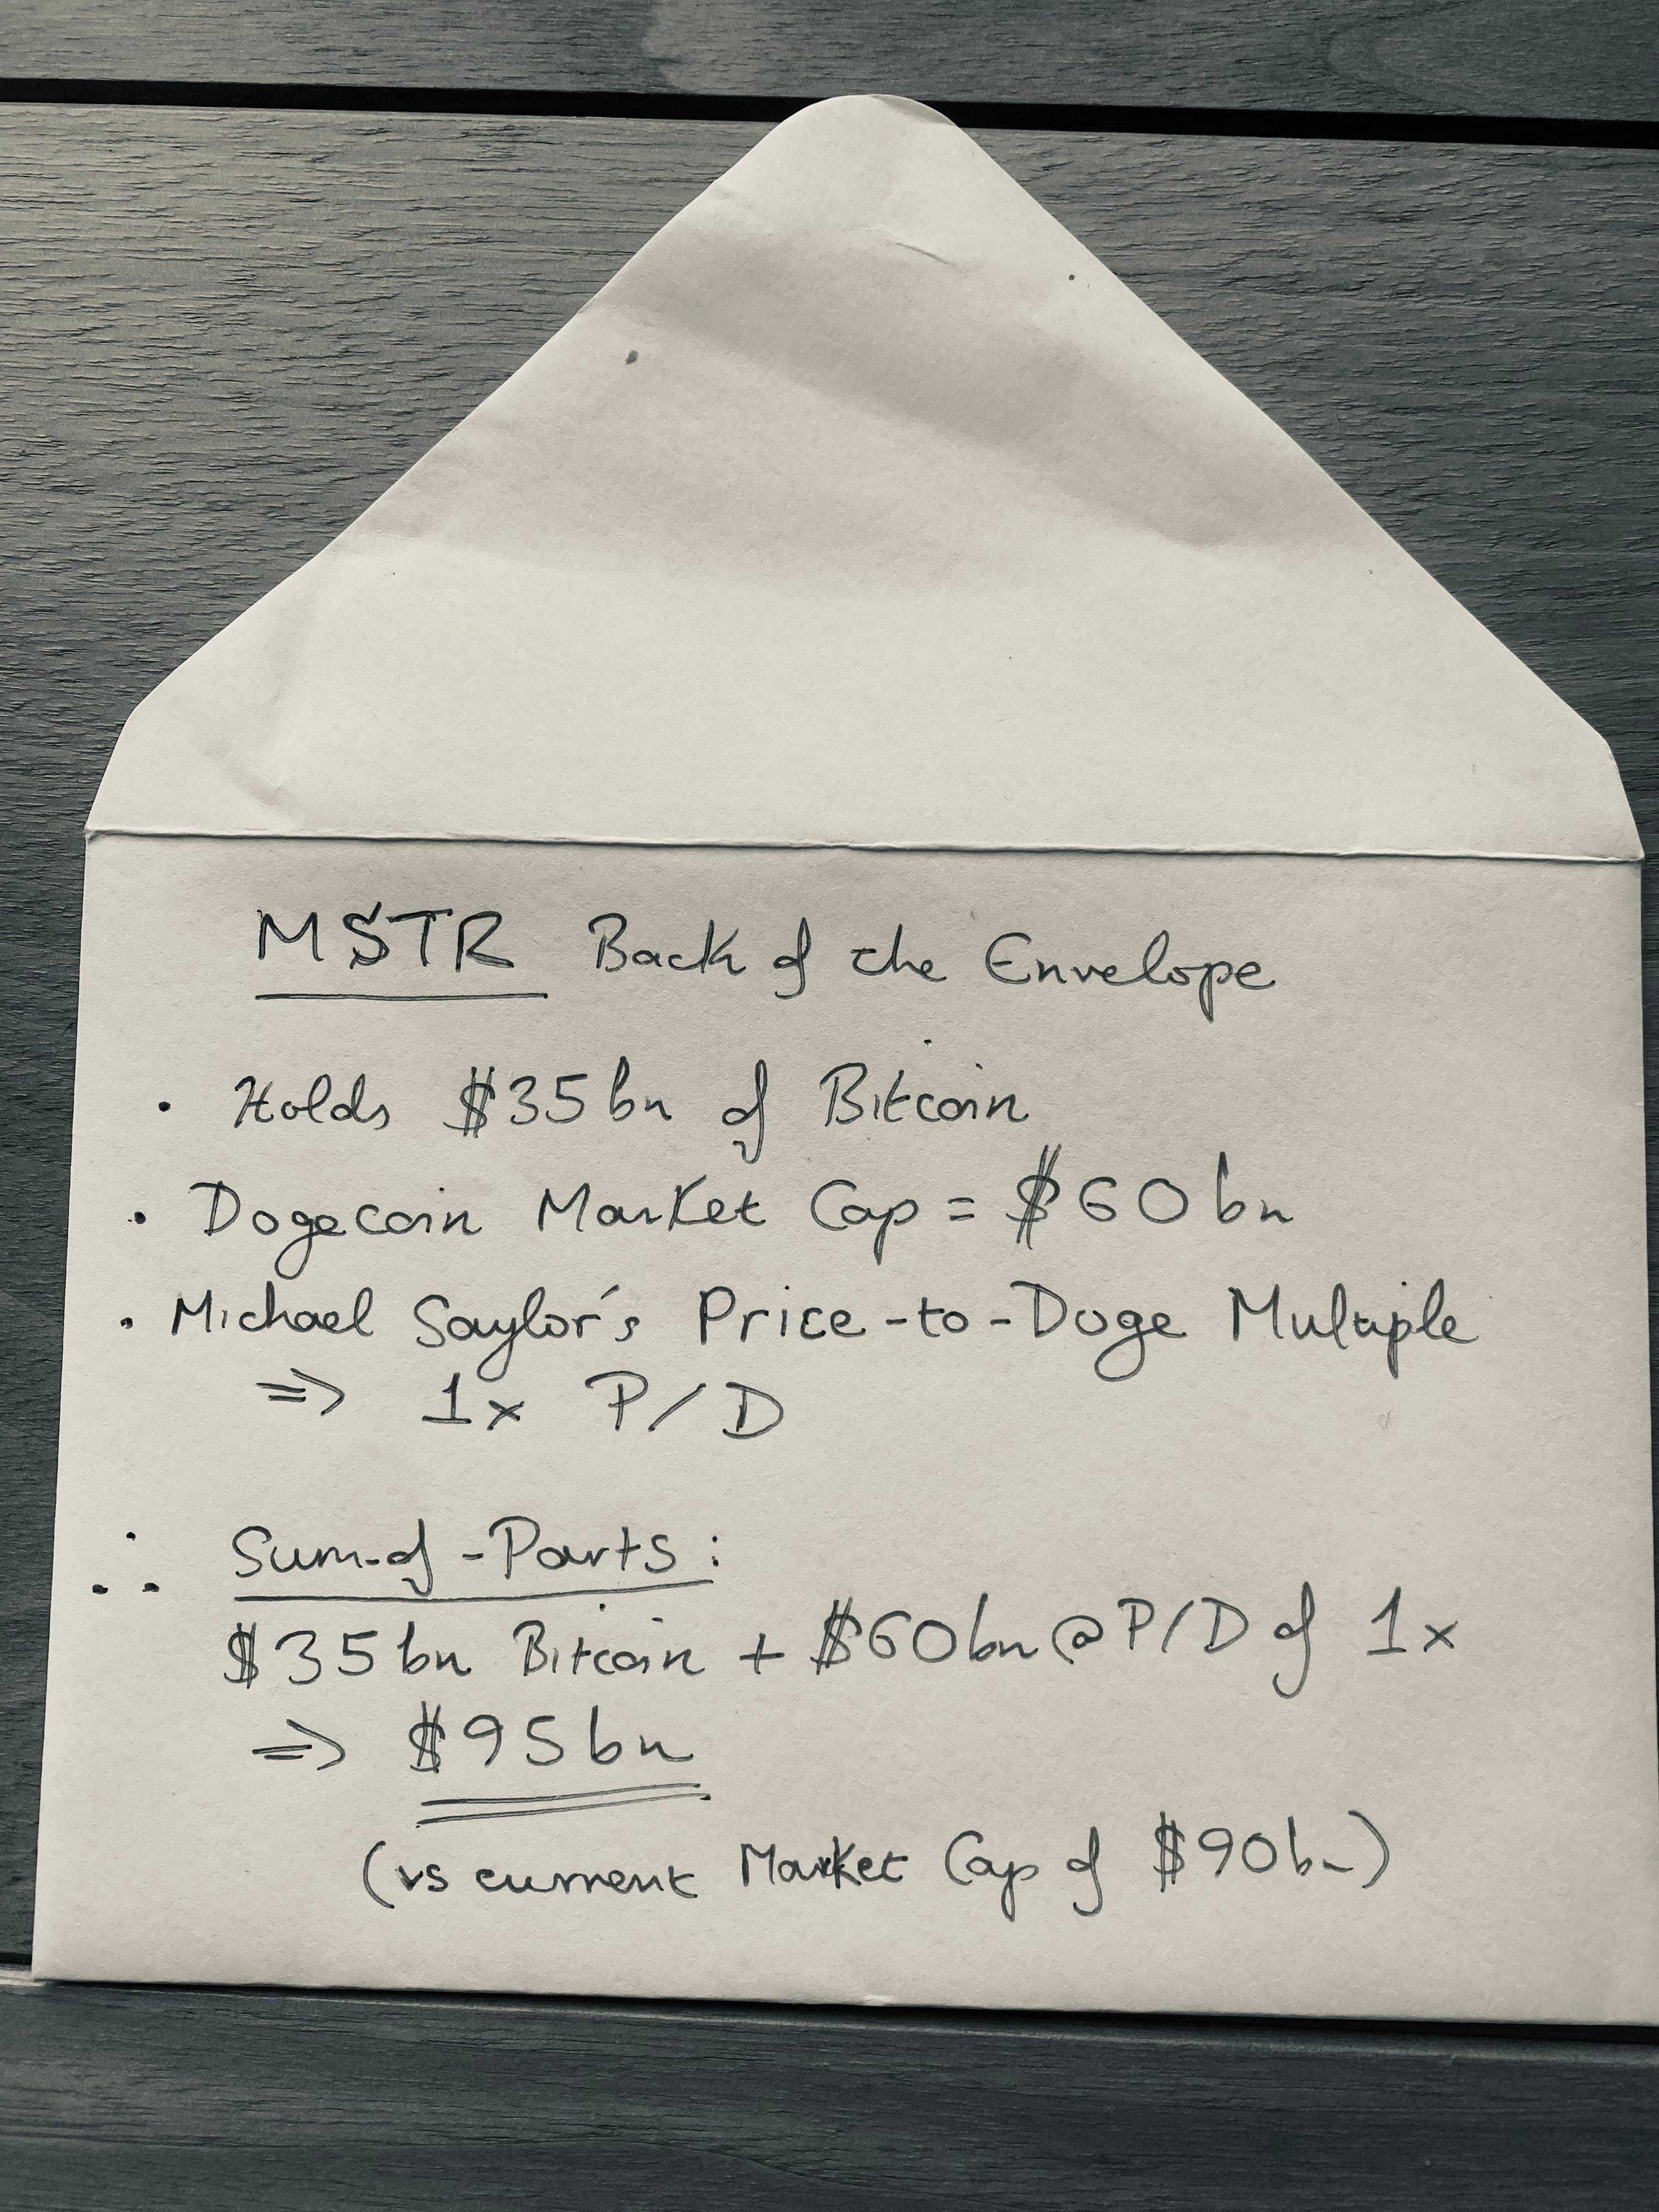 MSTR Back of the Envelope
• Holds $35bn of Bitcoin
• Dogecoin Market Cap = $60bn
• Michael Saylor's Price-to-Doge Multiple
⇒ 1x P/D
∴ Sum-of-Parts:
$35bn Bitcoin + $60bn @ P/D of 1x
⇒ $95bn
(vs current Market Cap of $90bn)